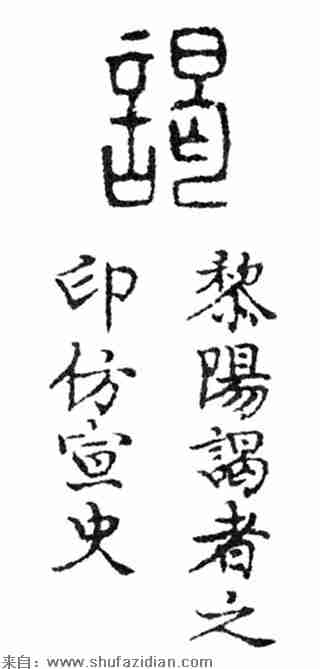 謁
黎陽謁者之
印仿宣史
来自：www.shufazidian.com